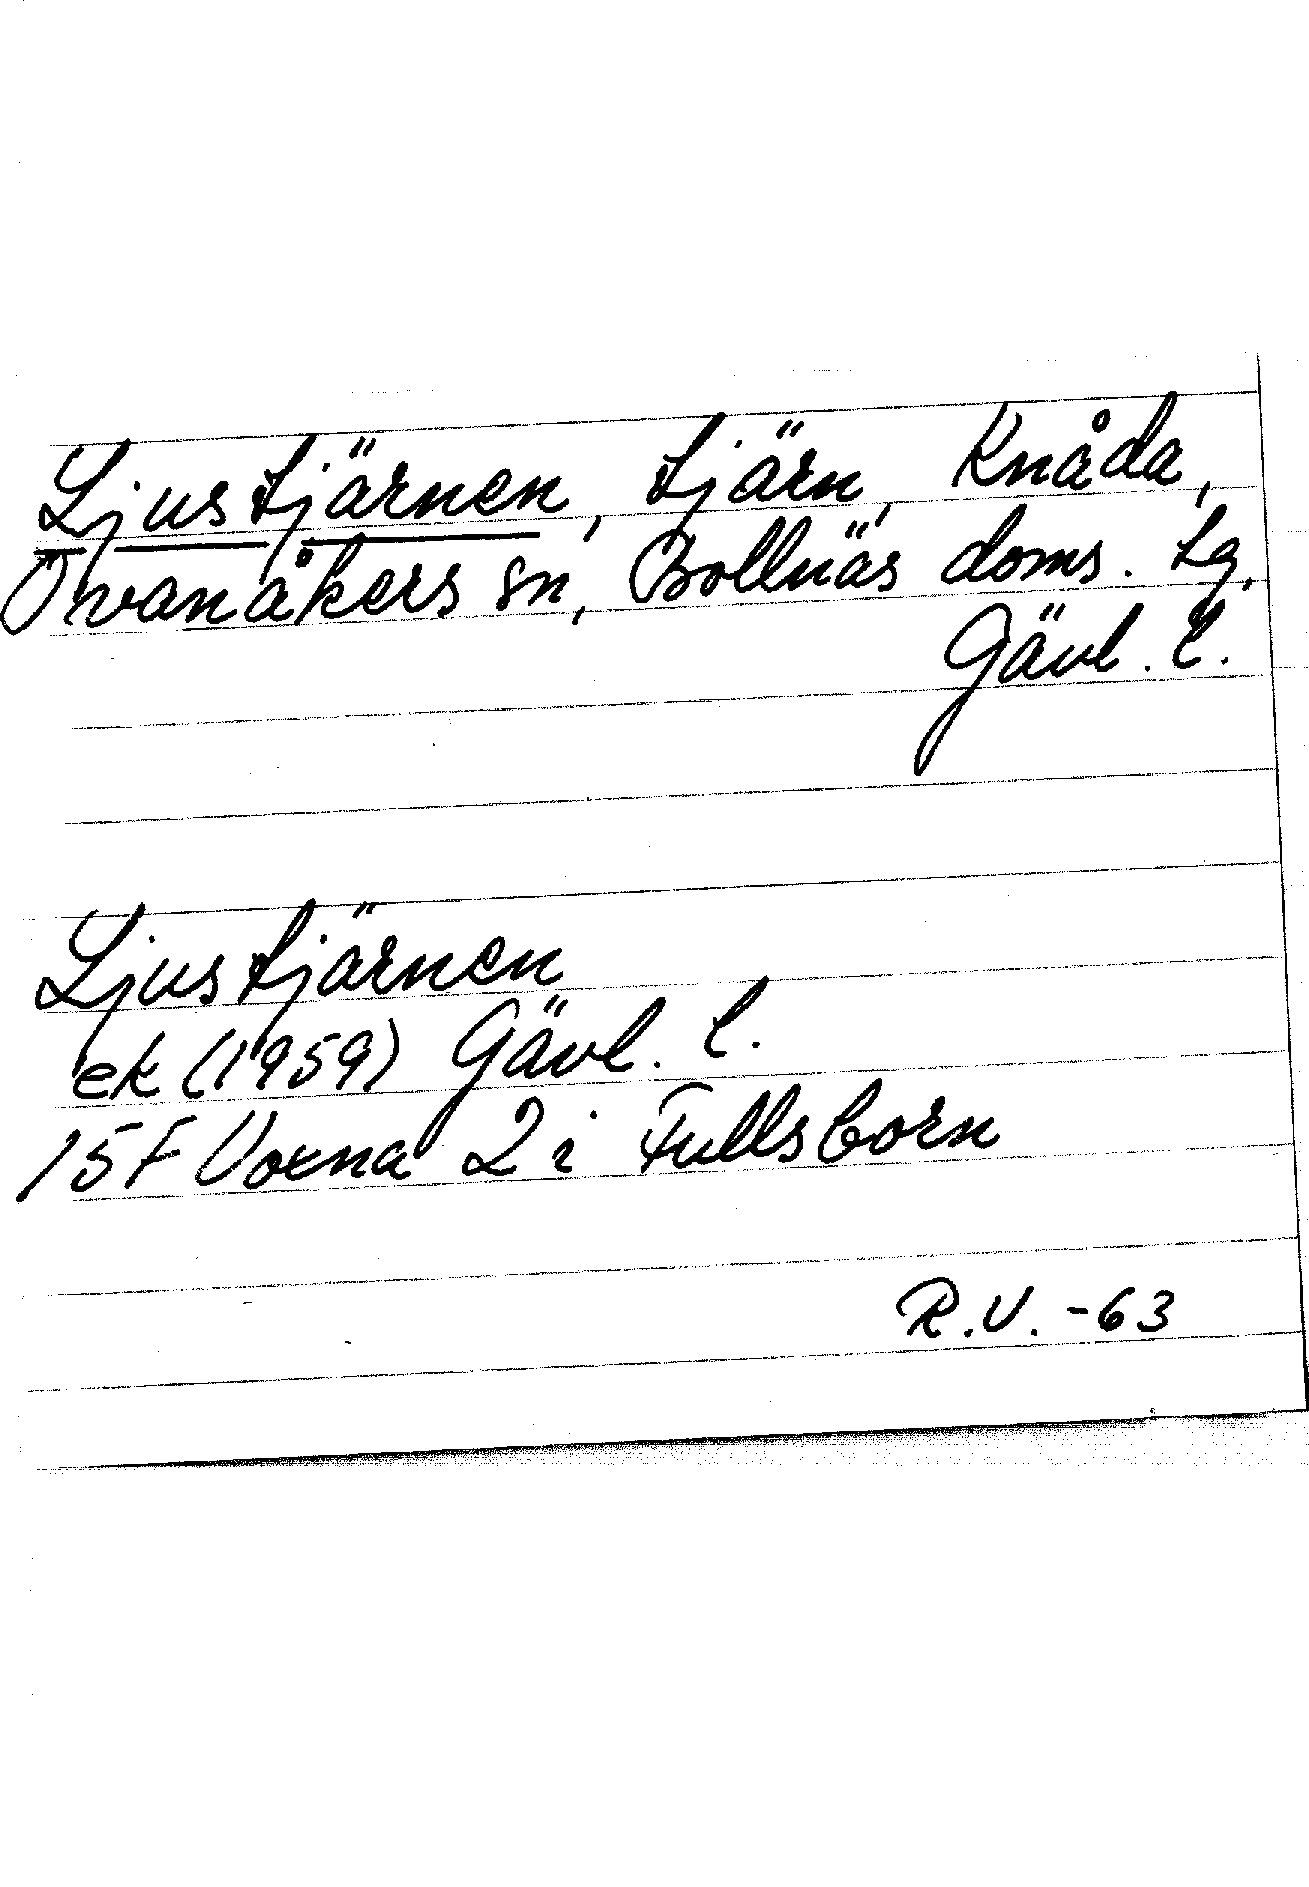 Ljustjärnen, tjärn, Knåda,
Ovanåkers sn, Bollnäs doms. tg,
Gävl. l.
Ljustjärnen
ek (1959) Gävl. l.
15F Voxna 2 i Fullsborn
R.V. -63